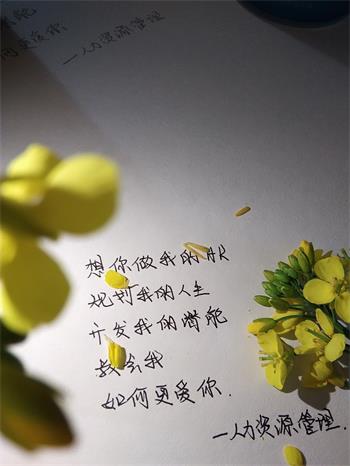 能
何更爱你
—人力资源管理
想你做我的HR
规划我的人生
开发我的潜能
教会我
如何更爱你.
—人力资源管理.